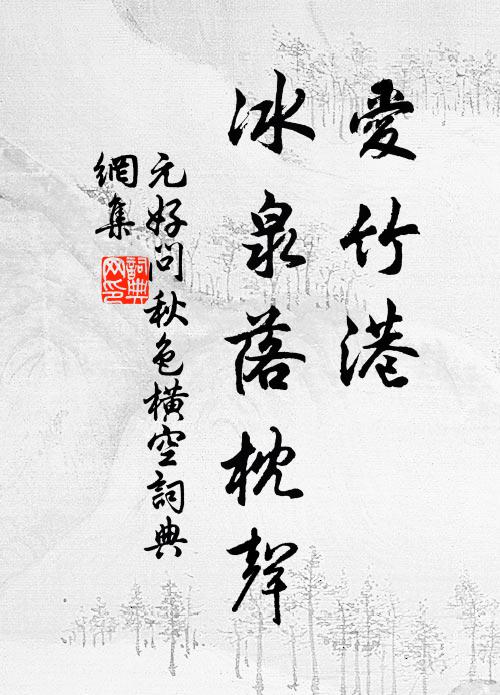 愛竹港
冰泉落枕聲
元好問秋色橫空詞典
網集
詞典
网印